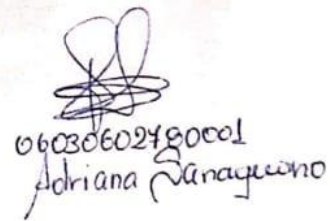 06030602780001
Adriana Sanaguano